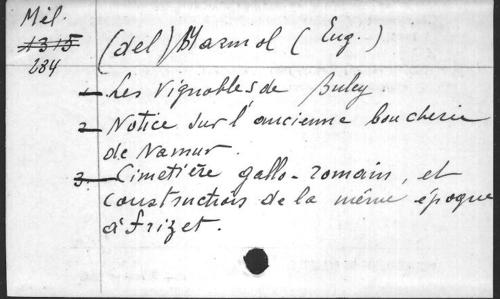 Mél.
1315
284
(del) Marmol (Eug.)
1 Les Vignobles de Buley
2 Notice sur l'ancienne boucherie
de Namur.
3. Cimetière gallo-romain, et
constructions de la même époque
à Frizet.